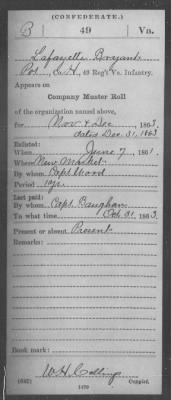 (CONFEDERATE.)
B 49 Va.
Lafayette Bryant
Pvt, Co. H, 49 Reg't Va. Infantry.
Appears on
Company Muster Roll
of the organization named above,
for Nov & Dec, 1863.
dated Dec. 31, 1863
Enlisted:
When June 7, 1861.
Where New Market
By whom Capt Ward
Period 1 yr.
Last paid:
By whom Capt. Baughan
To what time Oct 31, 1863.
Present or absent Present
Remarks:
Book mark:
W H Collins
(642) 1479 Copyist.